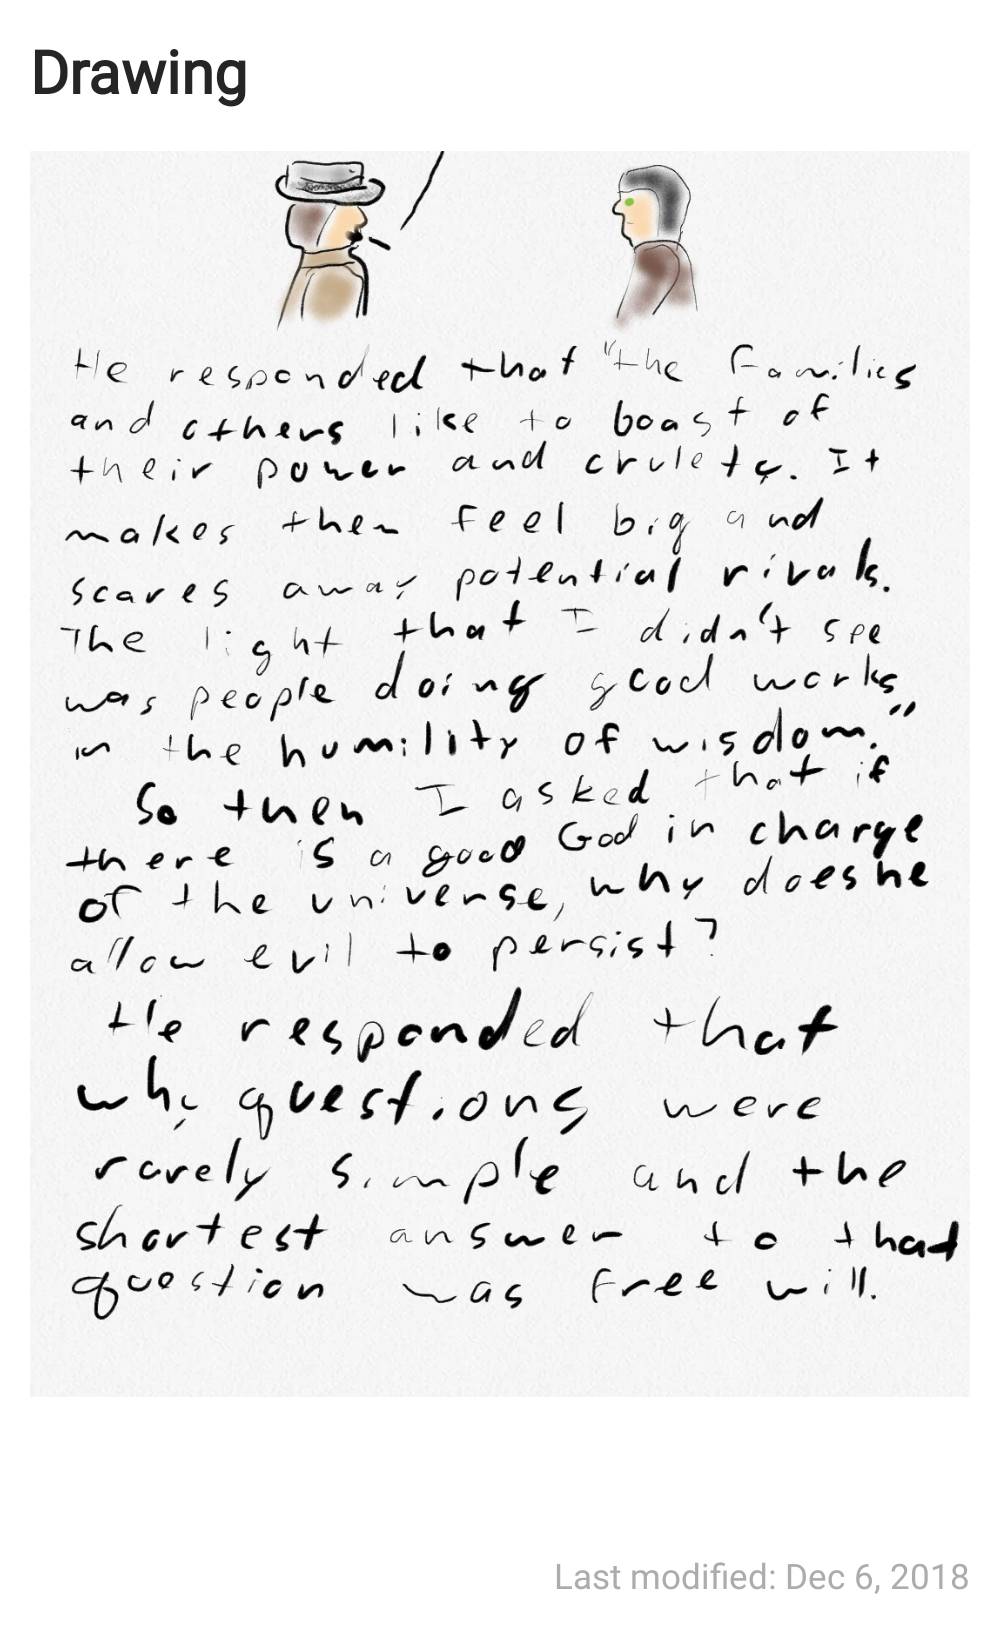 Drawing
He responded that "the families
and others like to boast of
their power and crulety. It
makes them feel big and
scares away potential rivals.
The light that I didn't see
was people doing good works
in the humility of wisdom."
So then I asked that if
there is a good God in charge
of the universe, why does he
allow evil to persist?
He responded that
why questions were
rarely simple and the
shortest answer to that
question was free will.
Last modified: Dec 6, 2018